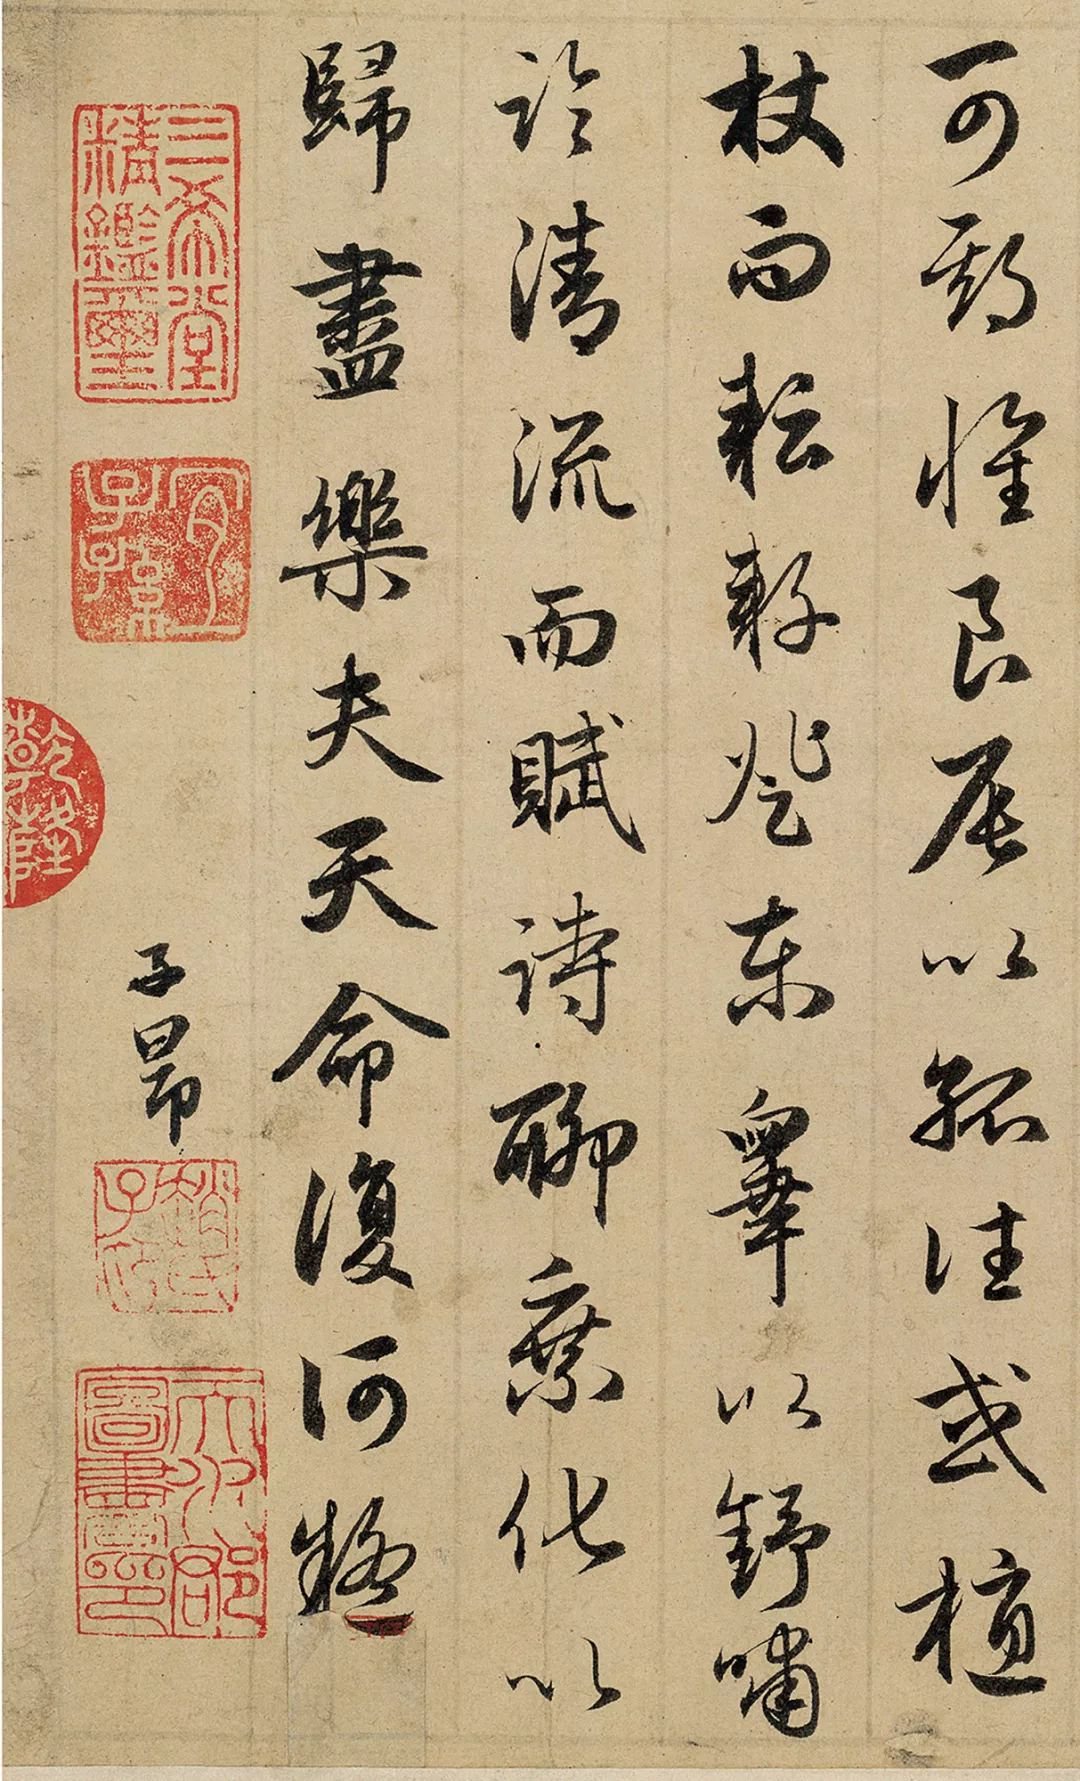 可期惟良辰以孤往或植
杖而耘耔登東皋以舒嘯
臨清流而賦詩聊乘化以
歸盡樂夫天命復何疑
子昂
三希堂
精鑑璽
宜
子孫
乾隆
趙氏
子昂
天水郡
圖書印